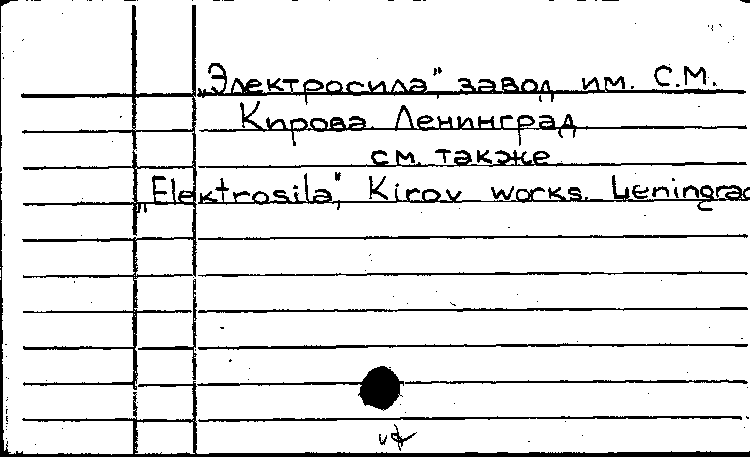 „Электросила", завод им. С.М.
Кирова. Ленинград
см. также
„Elektrosila", Kirov works. Leningrad